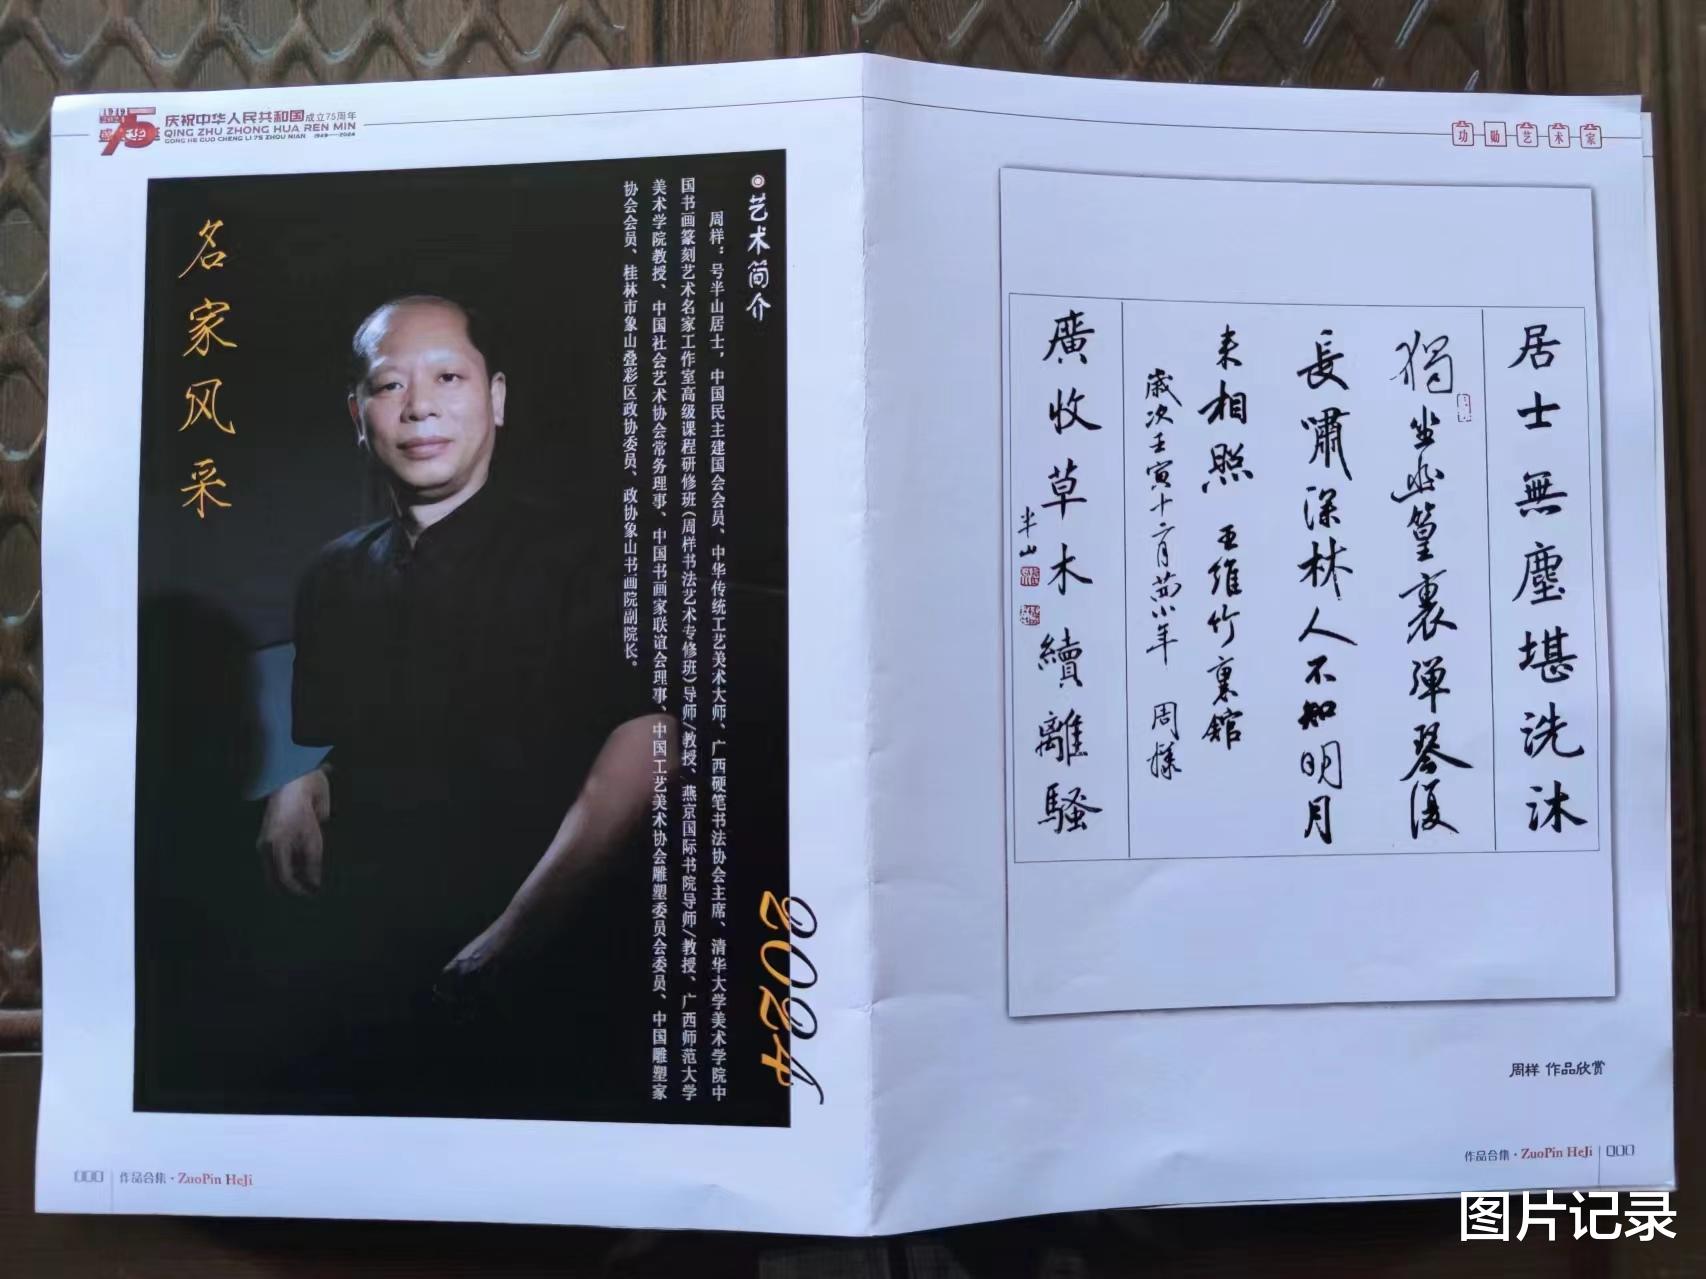 庆祝中华人民共和国成立75周年
QING ZHU ZHONG HUA REN MIN
GONG HE GUO CHENG LI 75 ZHOU NIAN 1949—2024
名家风采
艺术简介
周样：号半山居士，中国民主建国会会员、中华传统工艺美术大师、广西硬笔书法协会主席、清华大学美术学院中
国书画篆刻艺术名家工作室高级课程研修班（周样书法艺术专修班）导师/教授、燕京国际书院导师/教授、广西师范大学
美术学院教授、中国社会艺术协会常务理事、中国书画家联谊会理事、中国工艺美术协会雕塑委员会委员、中国雕塑家
协会会员、桂林市象山叠彩区政协委员、政协象山书画院副院长。
2024
作品合集·ZuoPin HeJi
功勋艺术家
居士無塵堪洗沐
獨坐幽篁裏彈琴復
長嘯深林人不知明月
来相照 王維竹裏館
歲次壬寅十二月 小年 周樣
廣收草木續離騷
半山
周样 作品欣赏
作品合集·ZuoPin HeJi
图片记录